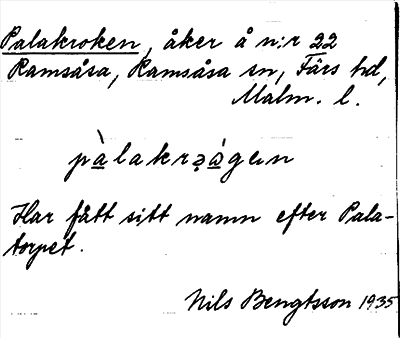 Palakroken, åker å n:r 22
Ramsåsa, Ramsåsa sn, Färs hd,
Malm. l.
pàlakrəágen
Har fått sitt namn efter Pala-
torpet.
Nils Bengtsson 1935